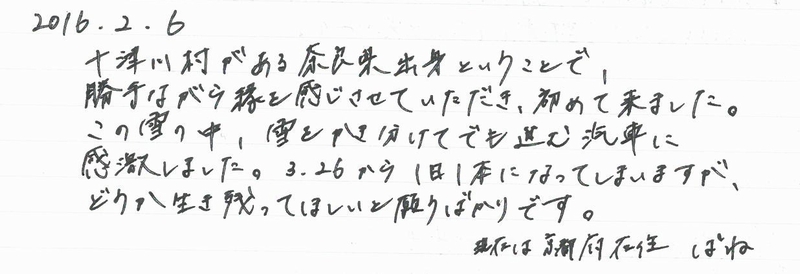 2016.2.6
十津川村がある奈良県出身ということで、
勝手ながら縁を感じさせていただき、初めて来ました。
この雪の中、雪をかき分けてでも進む汽車に
感激しました。3.26から1日1本になってしまいますが、
どうか生き残ってほしいと願うばかりです。
現在は京都府在住 ばね